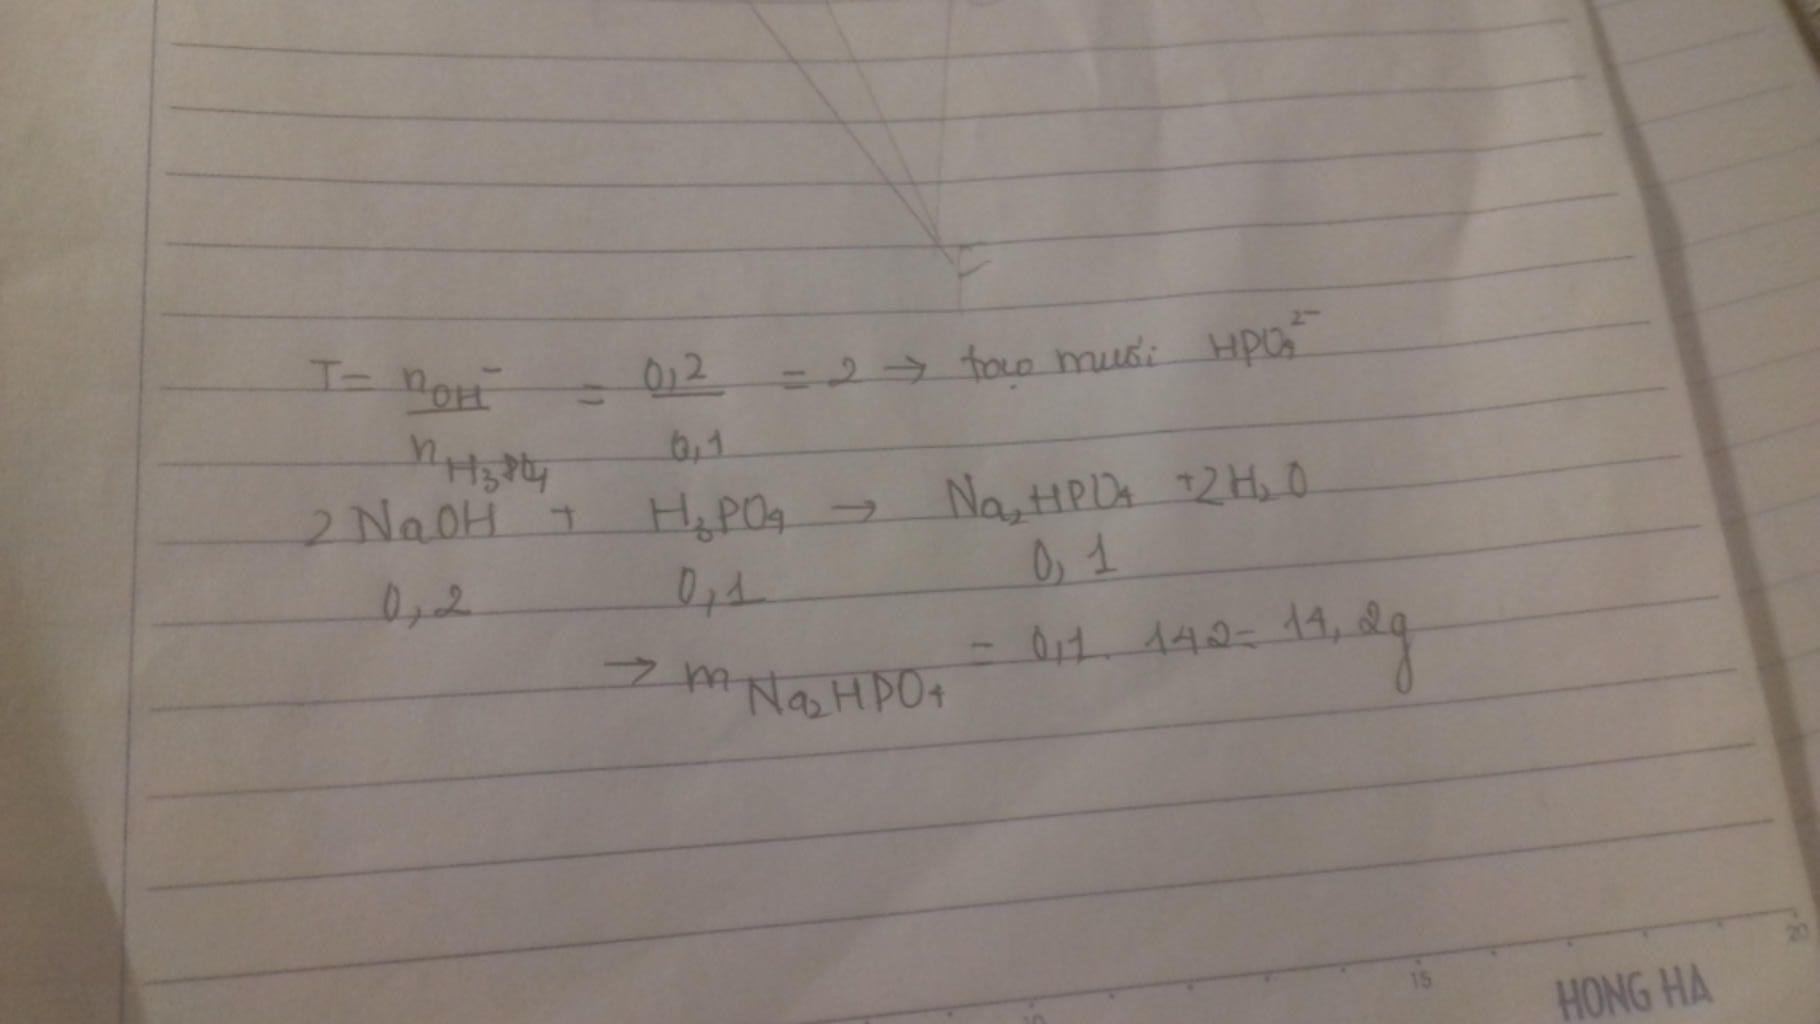 F
T = nOH⁻ / nH₃PO₄ = 0,2 / 0,1 = 2 → tạo muối HPO₄²⁻
2NaOH + H₃PO₄ → Na₂HPO₄ + 2H₂O
0,2 0,1 0,1
→ mNa₂HPO₄ = 0,1. 142 = 14,2g
10 15 20
HONG HA